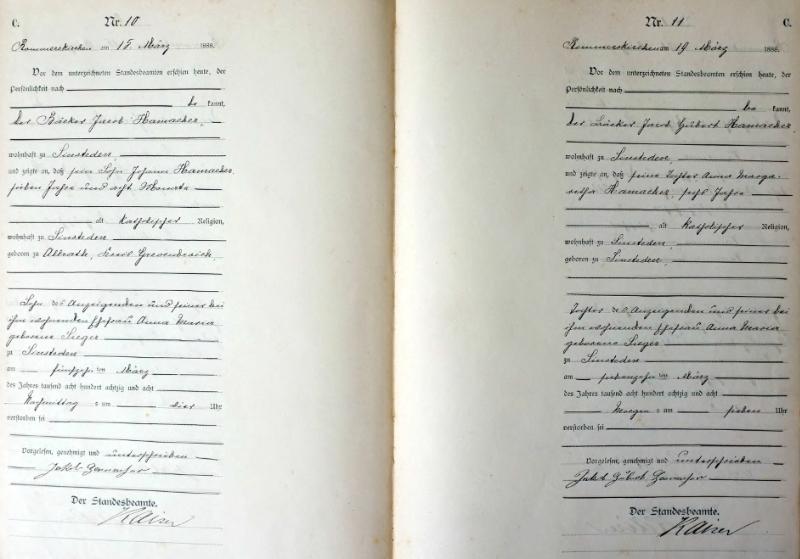 C. Nr. 10
Rommerskirchen am 15 März 1888.
Vor dem unterzeichneten Standesbeamten erschien heute, der
Persönlichkeit nach
be kannt,
der Bäcker Jacob Hamacher
wohnhaft zu Sinsteden
und zeigte an, daß sein Sohn Johann Hamacher,
sieben Jahre und acht Monate
alt katholischer Religion,
wohnhaft zu Sinsteden
geboren zu Allrath, Kreis Grevenbroich
Sohn des Anzeigenden und seiner bei
ihm wohnenden Ehefrau Anna Maria
geborene Sieger
zu Sinsteden
am fünfzehnten März
des Jahres tausend acht hundert achtzig und acht
Nachmittag s um vier Uhr
verstorben sei
Vorgelesen, genehmigt und unterschrieben
Jakob Hamacher
Der Standesbeamte.
Kaiser
Nr. 11 C.
Rommerskirchen am 19 März 1888.
Vor dem unterzeichneten Standesbeamten erschien heute, der
Persönlichkeit nach
be kannt,
der Bäcker Jacob Hubert Hamacher
wohnhaft zu Sinsteden
und zeigte an, daß seine Tochter Anna Marga
retha Hamacher, sechs Jahre
alt katholischer Religion,
wohnhaft zu Sinsteden
geboren zu Sinsteden
Tochter des Anzeigenden und seiner bei
ihm wohnenden Ehefrau Anna Maria
geborene Sieger
zu Sinsteden
am siebenzehnten März
des Jahres tausend acht hundert achtzig und acht
Morgen s um sieben Uhr
verstorben sei
Vorgelesen, genehmigt und unterschrieben
Jakob Hubert Hamacher
Der Standesbeamte.
Kaiser